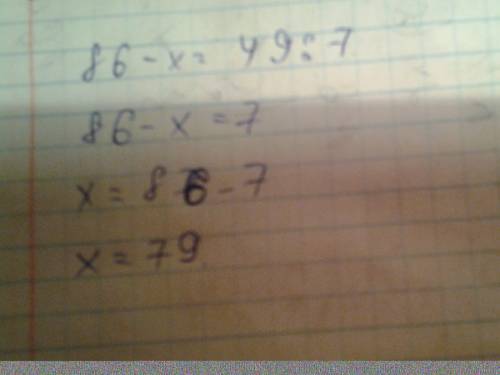 86 - x = 49 : 7
86 - x = 7
x = 86 - 7
x = 79